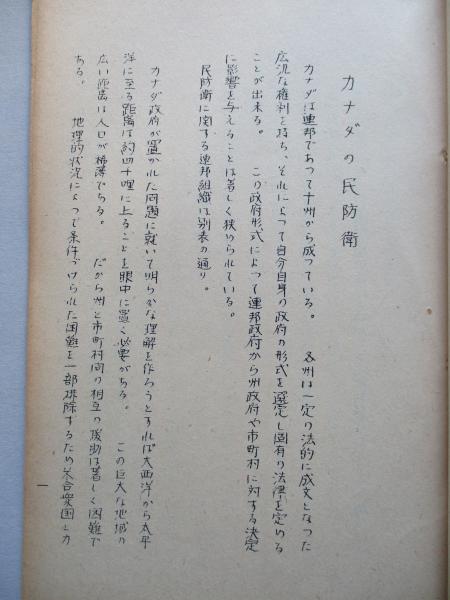 カナダの民防衛
カナダは連邦であつて十州から成つている。　各州は一定の法的に成文となつた
広汎な権利を持ち、それによつて自分自身の政府の形式を選定し固有の法律を定める
ことが出来る。　この政府形式によつて連邦政府から州政府や市町村に対する決定
に影響を与えることは著しく狭められている。
民防衛に関する連邦組織は別表の通り。
カナダ政府が置かれた問題に就いて明らかな理解を作ろうとすれば大西洋から太平
洋に至る距離は約四千哩に上ることを眼中に置く必要がある。　この巨大な地域の
広い距離は人口が稀薄である。　だから州と市町村間の相互の援助は著しく困難で
ある。　地理的状況によつて条件づけられた困難を一部排除するため米合衆国とカ
一